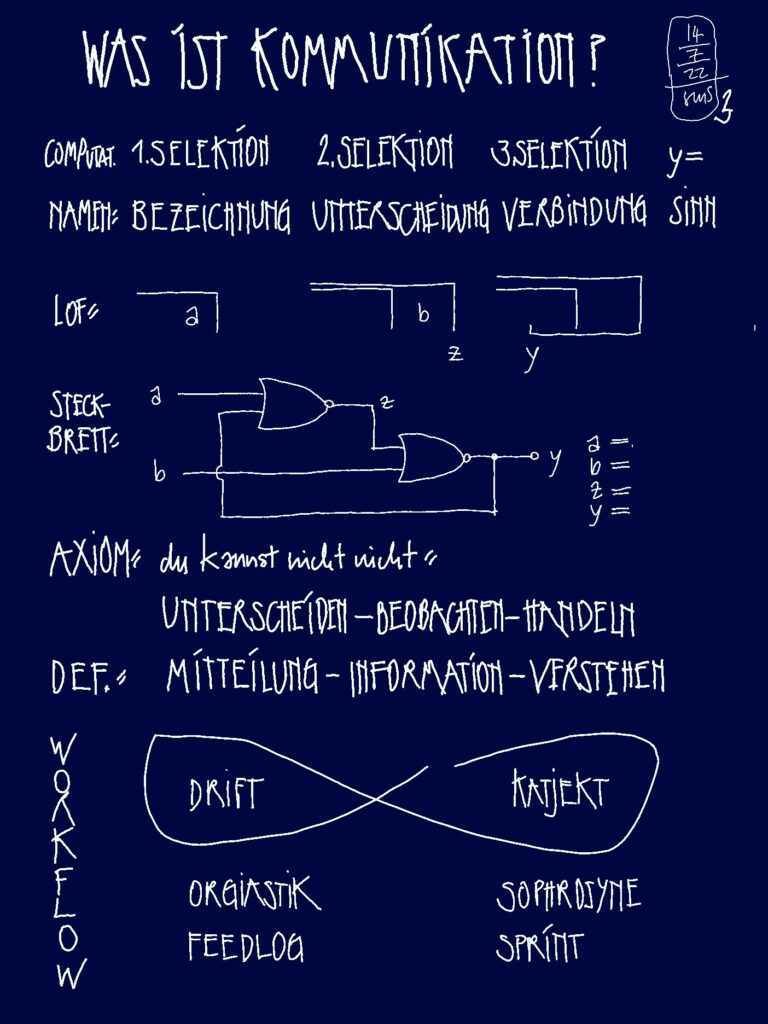 WAS IST KOMMUNIKATION?
14
7
22
sms
3
COMPUTAT. 1.SELEKTION 2.SELEKTION 3.SELEKTION y=
NAMEN= BEZEICHNUNG UNTERSCHEIDUNG VERBINDUNG SINN
LOF= a b
z y
a z
STECK-
BRETT=
b y
a =
b =
z =
y =
AXIOM= du kannst nicht nicht =
UNTERSCHEIDEN-BEOBACHTEN-HANDELN
DEF.= MITTEILUNG-INFORMATION-VERSTEHEN
WORKFLOW
DRIFT KATJEKT
ORGIASTIK SOPHROSYNE
FEEDLOG SPRINT